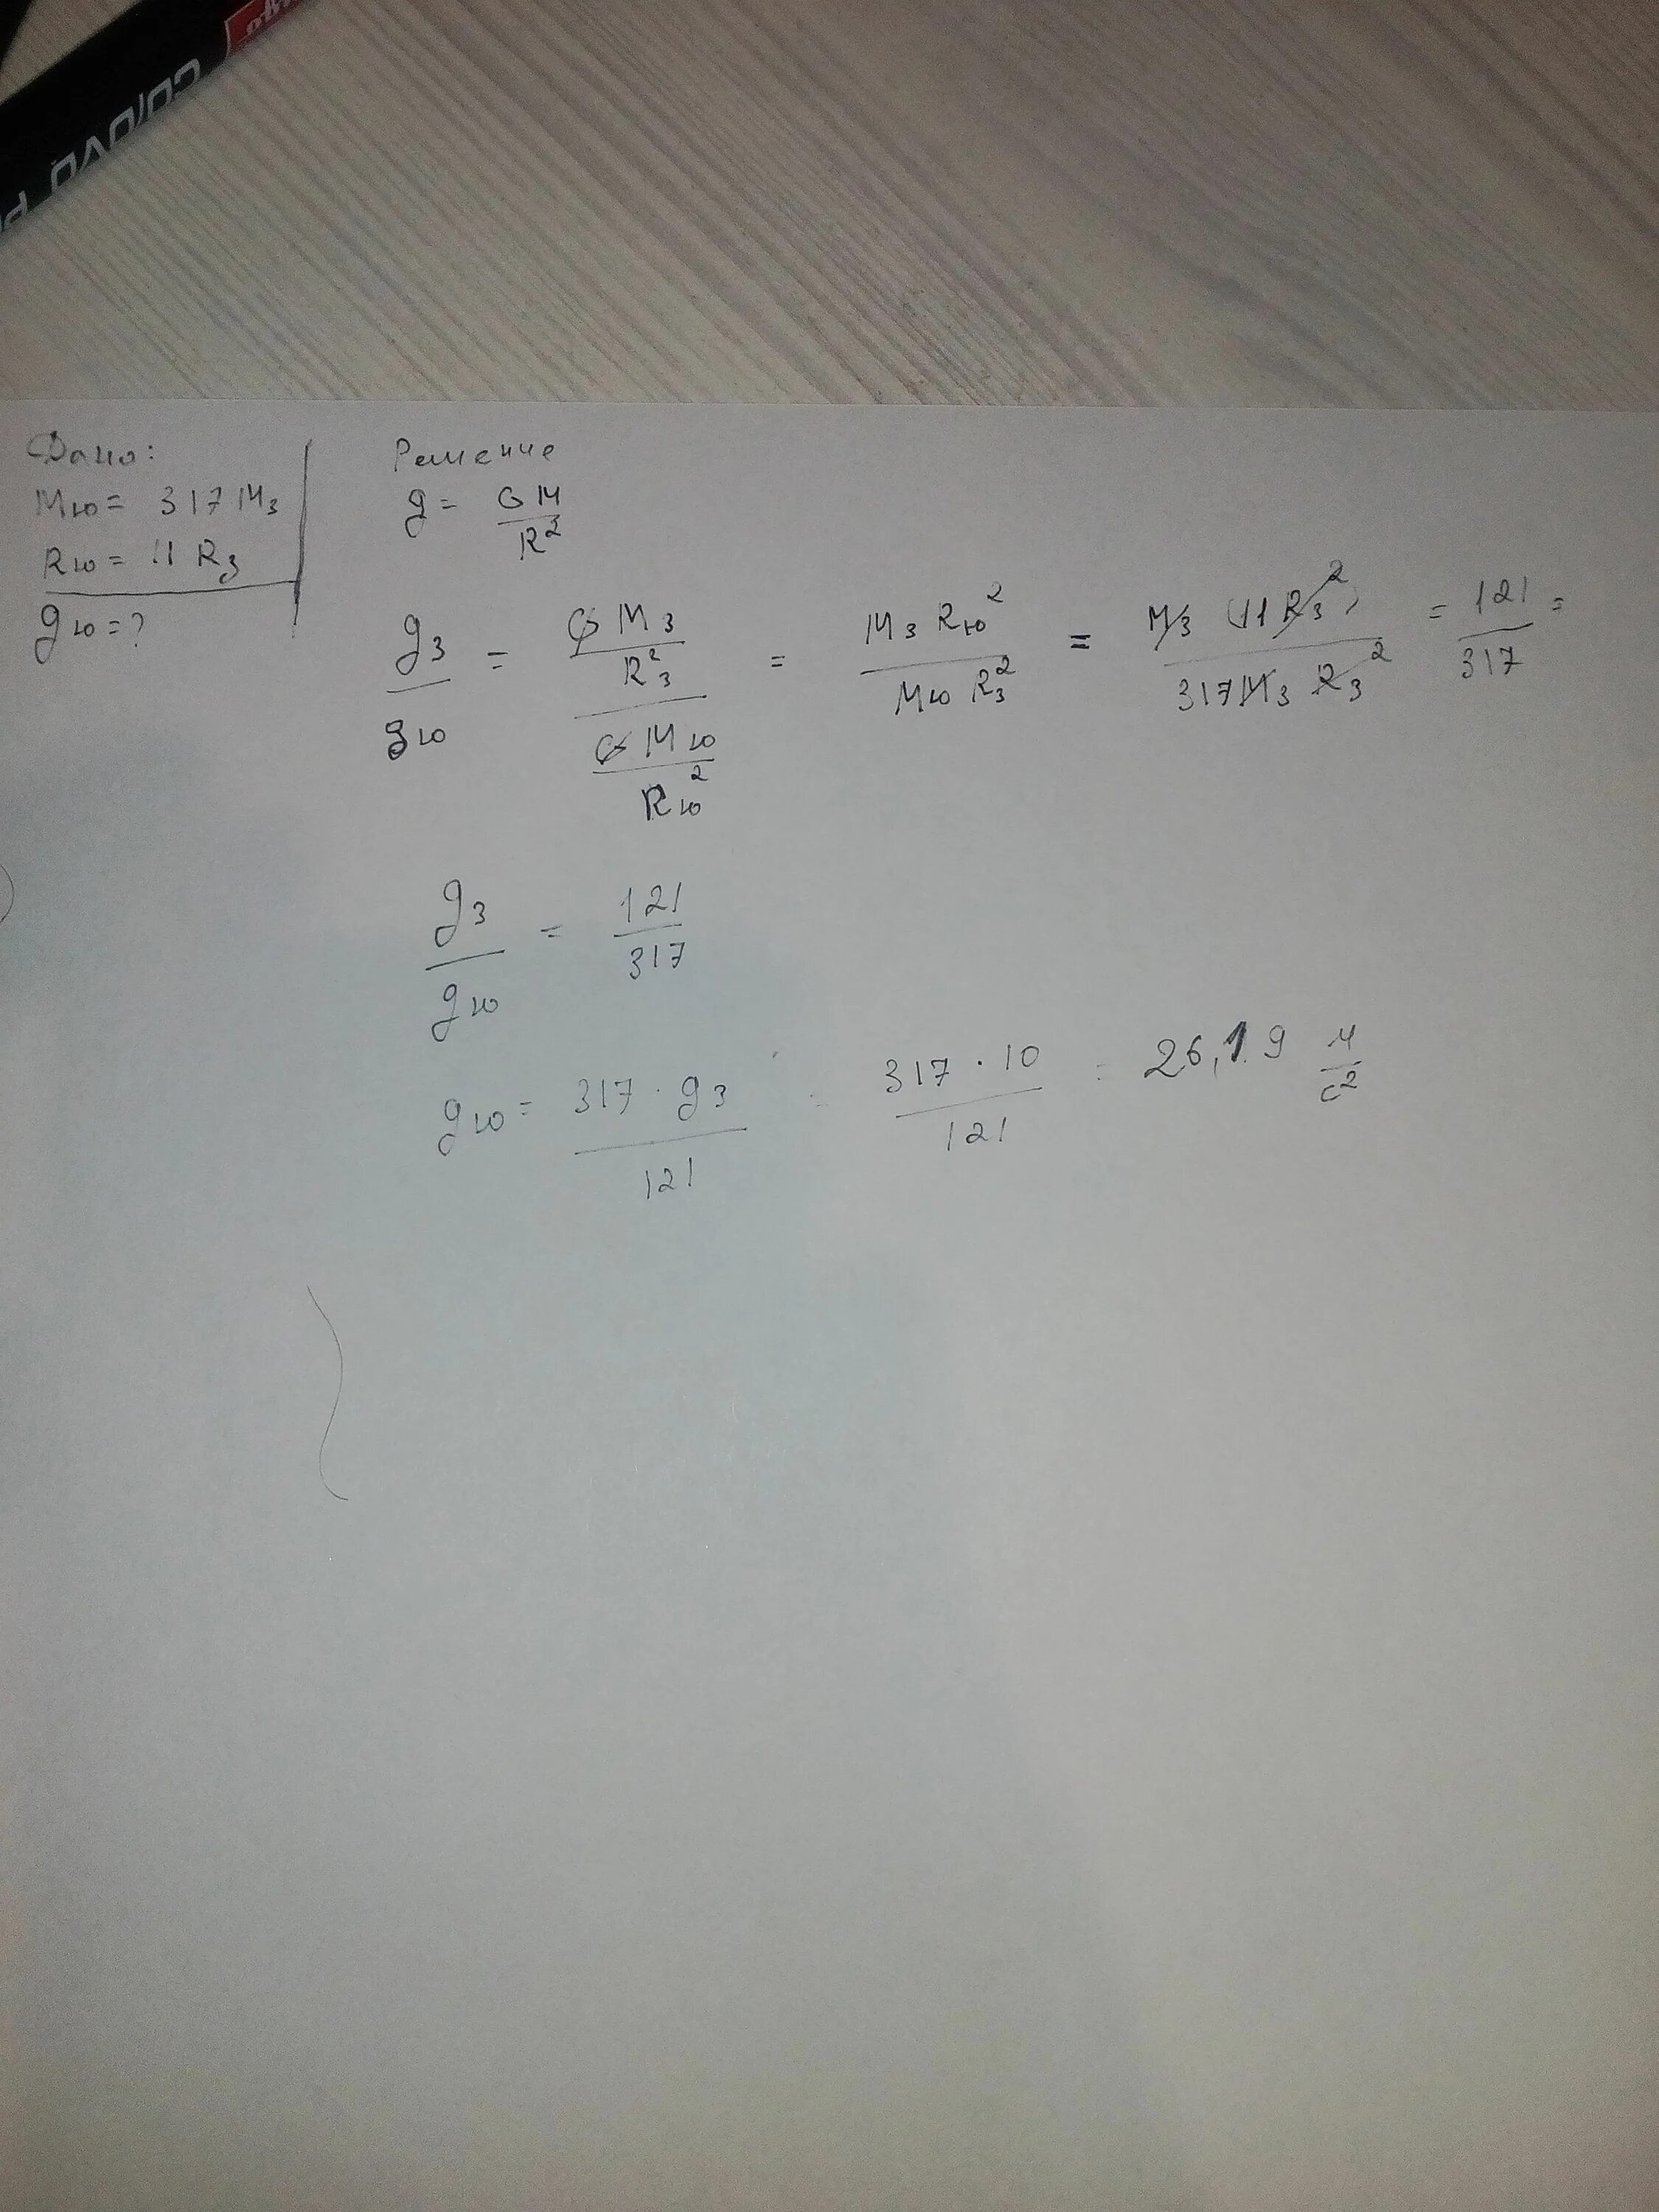 CD/DVD P
Дано:
Mю = 317 M₃
Rю = 11 R₃
gю = ?
Решение
g = GM / R²
g₃ / gю = (G M₃ / R₃²) / (G Mю / Rю²) = M₃ Rю² / Mю R₃² = M₃ (11 R₃²)² / 317 M₃ R₃² = 121 / 317 =
g₃ / gю = 121 / 317
gю = 317 · g₃ / 121 = 317 · 10 / 121 = 26,19 м/с²